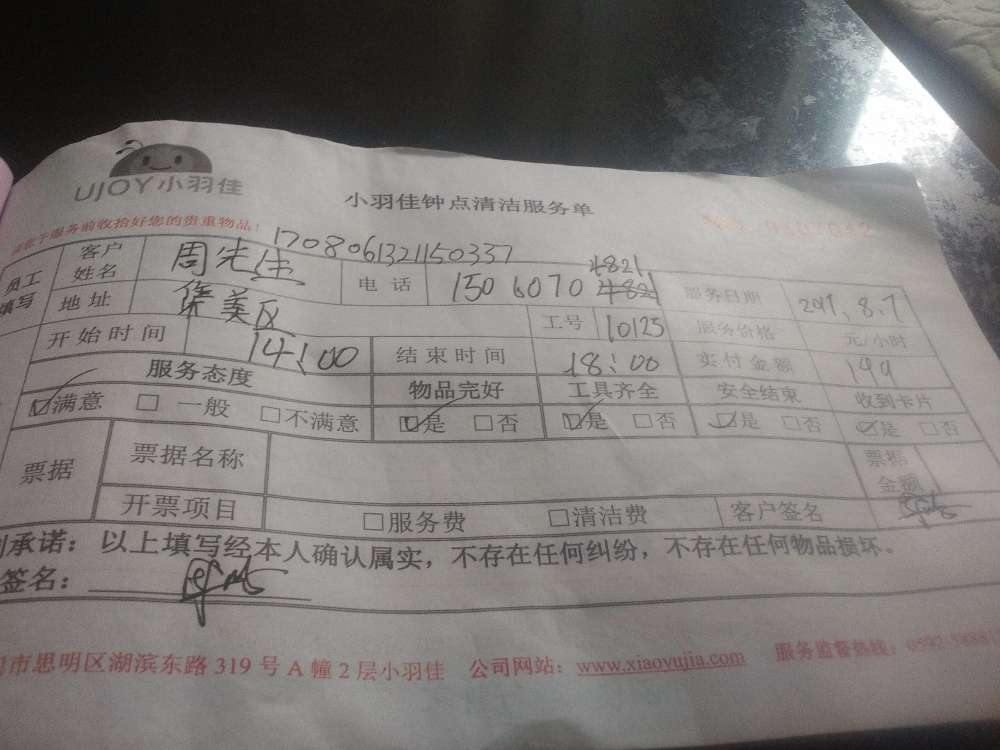 UJOY小羽佳
小羽佳钟点清洁服务单
于服务前收拾好您的贵重物品!
170806132150337
员工填写 客户姓名 周先生 电话 150 6070 4821 服务日期 2017.8.7
地址 集美区 工号 10125 服务价格 元/小时
开始时间 14:00 结束时间 18:00 实付金额 199
服务态度 物品完好 工具齐全 安全结束 收到卡片
☑满意 □一般 □不满意 ☑是 □否 ☑是 □否 ☑是 □否 ☑是 □否
票据 票据名称 票据金额
开票项目 □服务费 □清洁费 客户签名
承诺:以上填写经本人确认属实,不存在任何纠纷,不存在任何物品损坏。
签名:
市思明区湖滨东路 319 号 A 幢 2 层小羽佳 公司网站:www.xiaoyujia.com 服务监督热线: